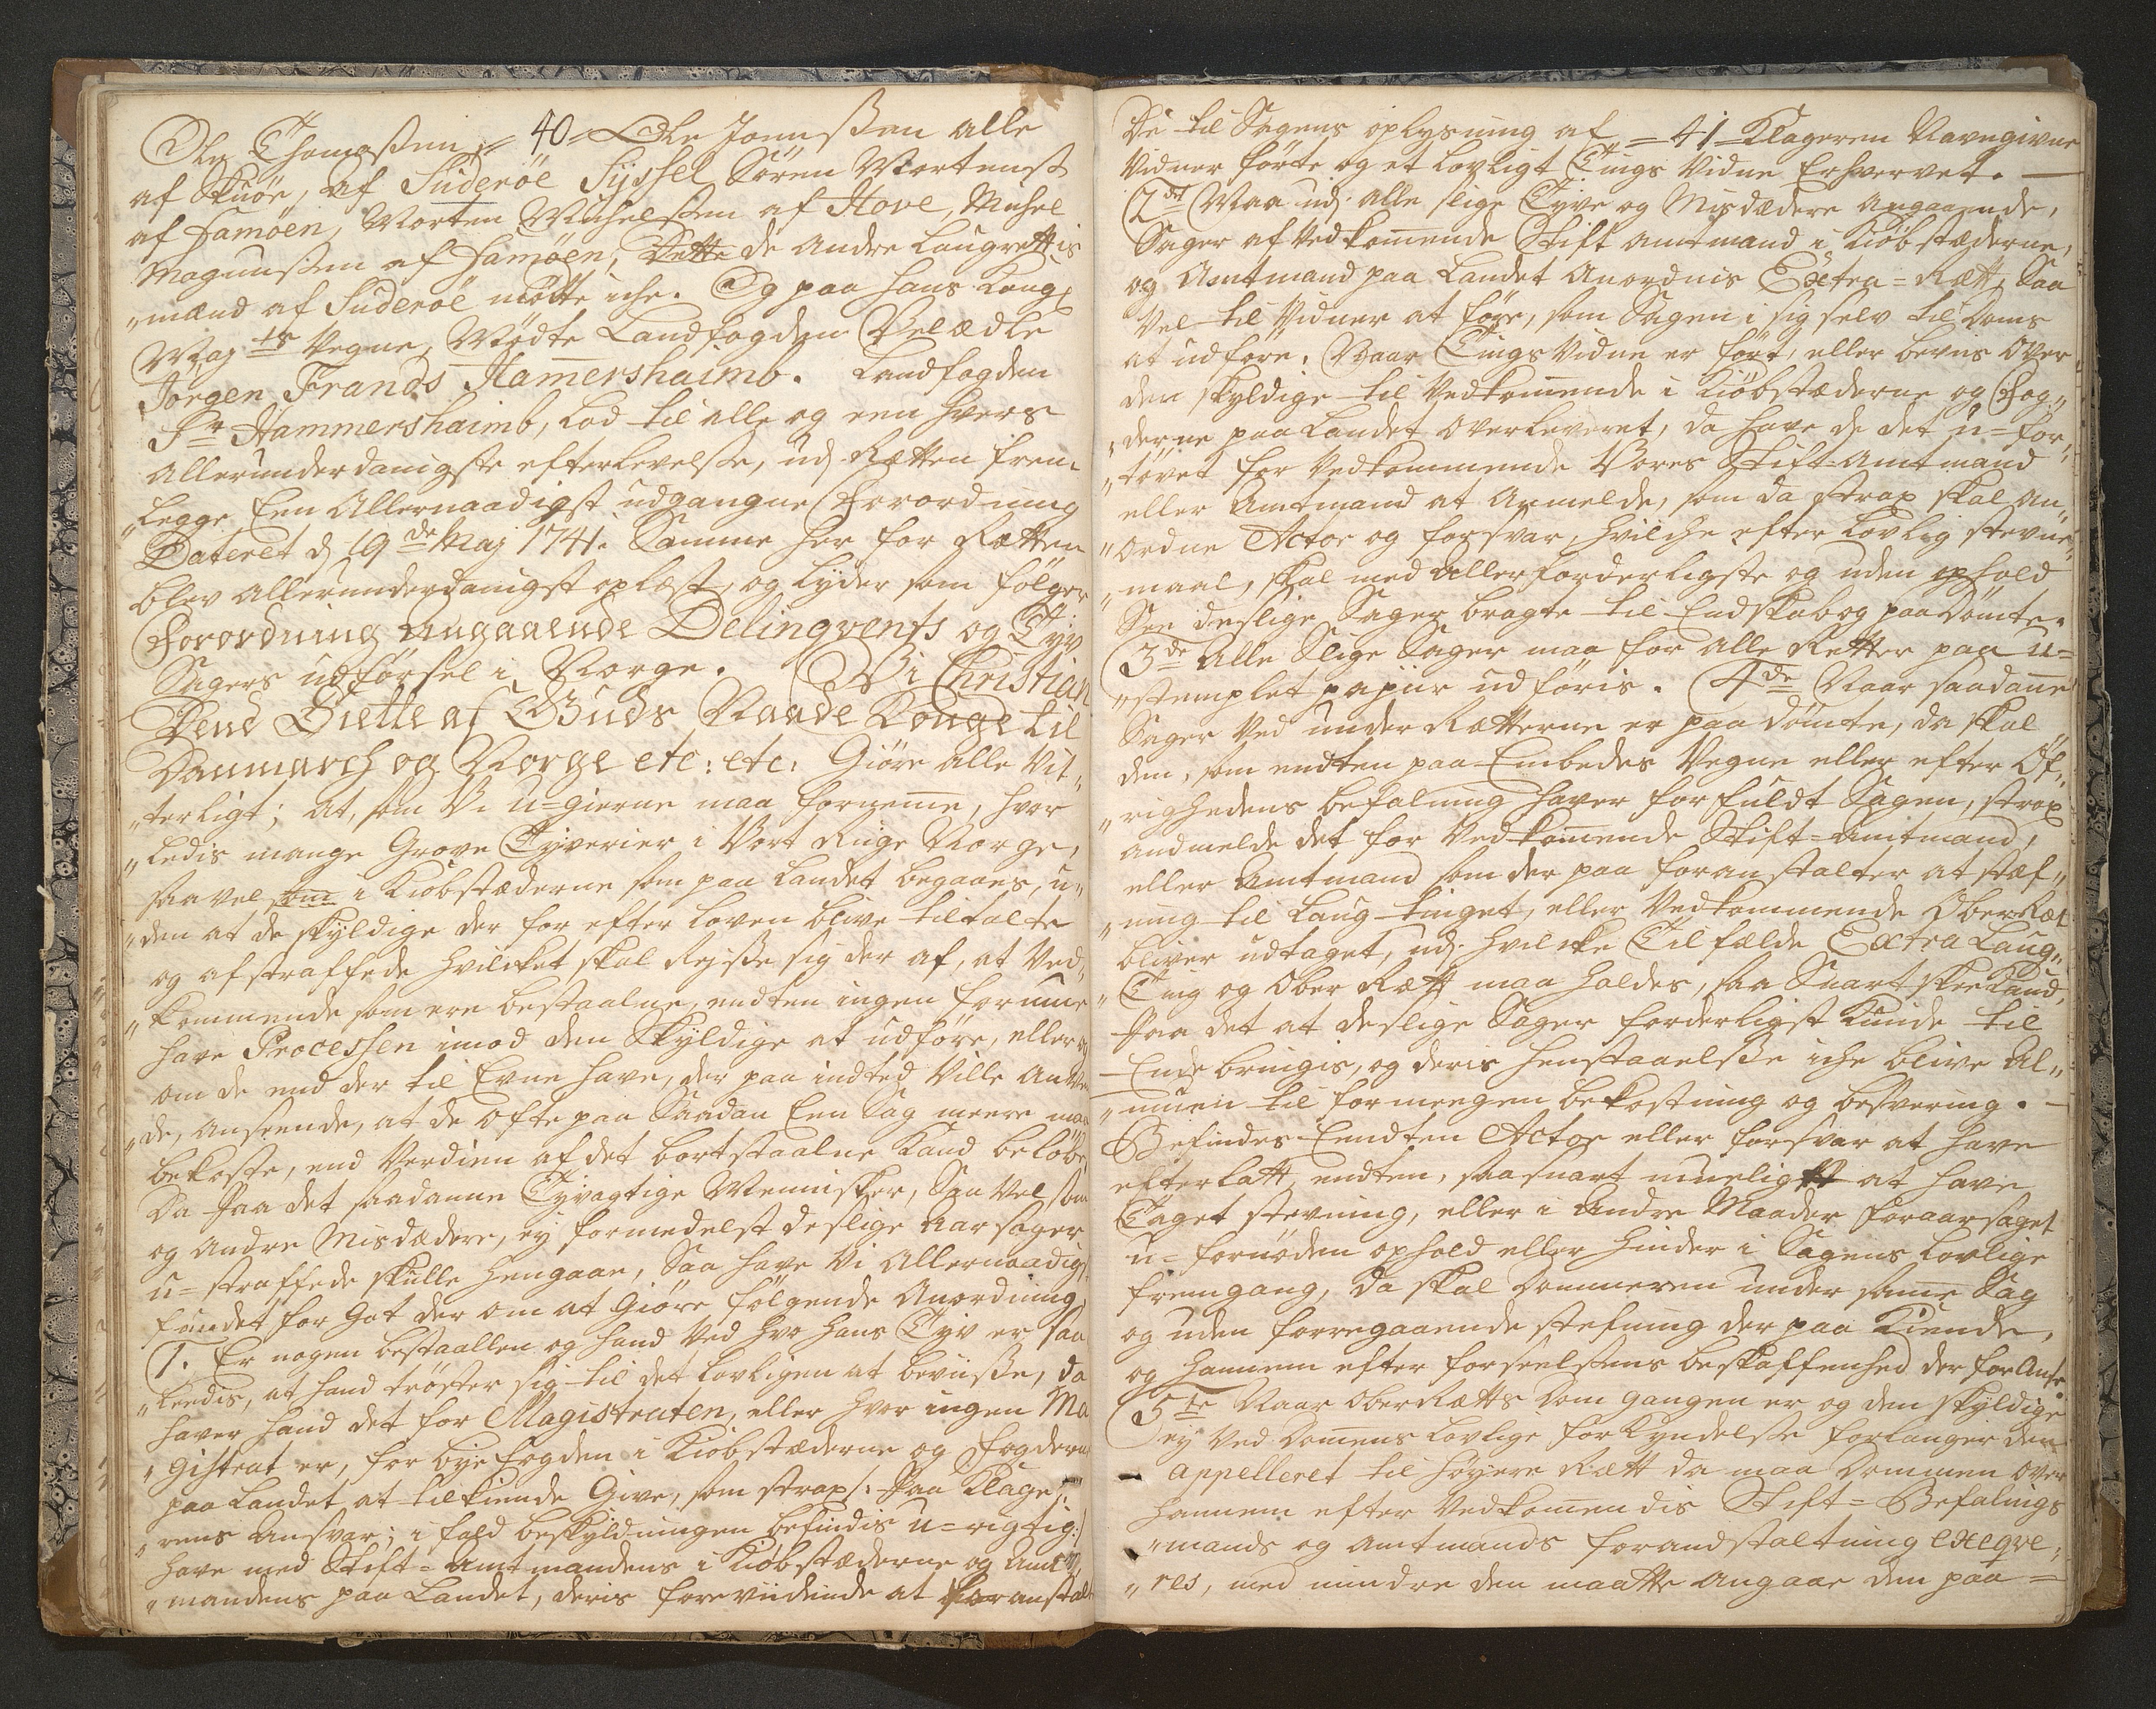 Ole Thomaßen, = 40 = Ole Joenßen alle
af Skuöe, af Süderöe Sÿssel Sören Mortenß
af Famöen, Morten Michelßen af Hove, Michel
Magnußen af Famöen, Dette de andre Laugrettis
"mænd af Süderöe mötte iche. Og paa Hans Kongl
Maj ts Vegne, Mödte Landfogden Velædle
Jörgen Frands Hamershaimb. Landfogden
Sr Hammershaimb, Lod til alle og een hvers
allerunderdanigste efterlevelße, udj Retten frem
"legge Een Allernaadigst udgangne Forordning
Dateret d 19 de Maj 1741. Samme her for Retten
blev allerunderdanigst oplæst, og lyder som fölger
Forordning Angaaende Delinqvents og Tyv
Sagers udförsel i Norge. Vi Christian
Dend Siette af Guds Naade Konge til
Danmarch og Norge etc: etc: Giöre alle Vit"
"terligt; At, som Vi u=gierne maa forneme, hvor
"ledis mange Grove Tyverier i Vort Rige Norge,
saa vel som i Kiöbstæderne som paa Landet begaaes, u"
"den at de skyldige der for efter Loven blive tiltalte
og afstraffede hvilcket skal Reiße sig der af, at Ved"
"kommende som ere bestaalne, endten ingen formue
have Processen imod den Skyldige at udföre, eller og
om de end der til Evne have, der paa indted Ville Anven
"de, Anseende, at de ofte paa Saadan Een Sag meere maa
bekoste, end Verdien af det bortstaalne Kand belöbe
Da paa det saadanne Tyvagtige Mennisker, Saa Vel som
og Andre Misdædere, ej formedelst deslige Aarsager
u=straffede skulle hengaae, Saa have Vi Allernaadigst
fundet for Got der om at Giöre fölgende Anordning
1. Er nogen bestaallen og hand Ved hvo hans Tyv er saa
"leedis, at hand tröster sig til det Lovligen at beviise, da
haver hand det for Magistraten, eller hvor ingen Ma
"gistrat er, for bÿe fogden i Kiöbstæderne og Fogderne
paa Landet at tilkiende Give, som strax /: paa Klage"
"rens Ansvar; i fald beskyldningen befindis u=rigtig :/
have med Stift=Amtmandens i Kiöbstæderne og Amt"
"mandens paa Landet, deris foreviidende at foranstalte
De til Sagens oplysning af = 41 = Klageren Navngivne
Vidner förte og et Lovligt Tings Vidne Erhvervet.
2 det Maa udj alle slige Tyve og Misdædere Angaaende,
Sager af Vedkomende Stift Amtmand i Kiöbstæderne,
og Amtmand paa Landet Anordnis Extra=Rætt, Saa
Vel til Vidner at före, som Sagen i sig selv til Doms
at udföre. Naar Tings Vidne er fört, eller bevis over
den skyldige til Vedkomende i Kiöbstæderne og Fog"
"derne paa Landet overleveret, da have de det u=for"
"tövet for Vedkommende Vores Stift=Amtmand
eller Amtmand at Anmelde, som da strax skal An"
"ordne Actor og forsvar, hvilche efter Lovlig stevne"
"maal, skal med Allerforderligste og uden ophold
See deslige Sager bragte til Endskab og paa Dömte.
3 de Alle Slige Sager maa for alle Retter paa u=
"stemplet papiir udföris. 4 de Naar saadane
Sager Ved under Rætterne er paa Dömte, da skal
den, som endten paa Embedes Vegne eller efter Öf"
"righedens befalning haver forfuldt Sagen, strax
Andmelde det for Vedkomende Stift=Amtmand,
eller Amtmand som der paa foranstalter at stæf"
"ning til Laug tinget, eller Vedkommende Ober Ræt
bliver udtaget, udj hvilcke Tilfælde Extra Laug"
"Ting og Ober Rætt maa holdes, saa Snart skee Kand,
paa det at deslige Sager forderligst Kunde til
Ende bringis, og deris henstaaelße iche blive Al"
"muen til formeegen bekostning og besvering.
Befindes Eendten Actor eller forsvar at have
efterlatt, endten, saasnart mueligtt at have
Taget stevning, eller i Andre Maader foraarsaget
u=fornöden ophold eller hinder i Sagens Lovlige
fremgang, da skal Dommeren under same Sag
og uden forregaaende stefning der paa Kiende,
og hannem efter forseelßens beskaffenhed der for Anse.
5 te Naar ober Rætts Dom gangen er og den skyldige
ey Ved Domens Lovlige forkyndelße forlanger den
appelleret til höyere Rætt da maa Dommen over
hannem efter Vedkomendis Stift=Befalings
"mands og Amtmands forandstaltning exeqve"
"res, med mindre den maatte Angaae den paa =